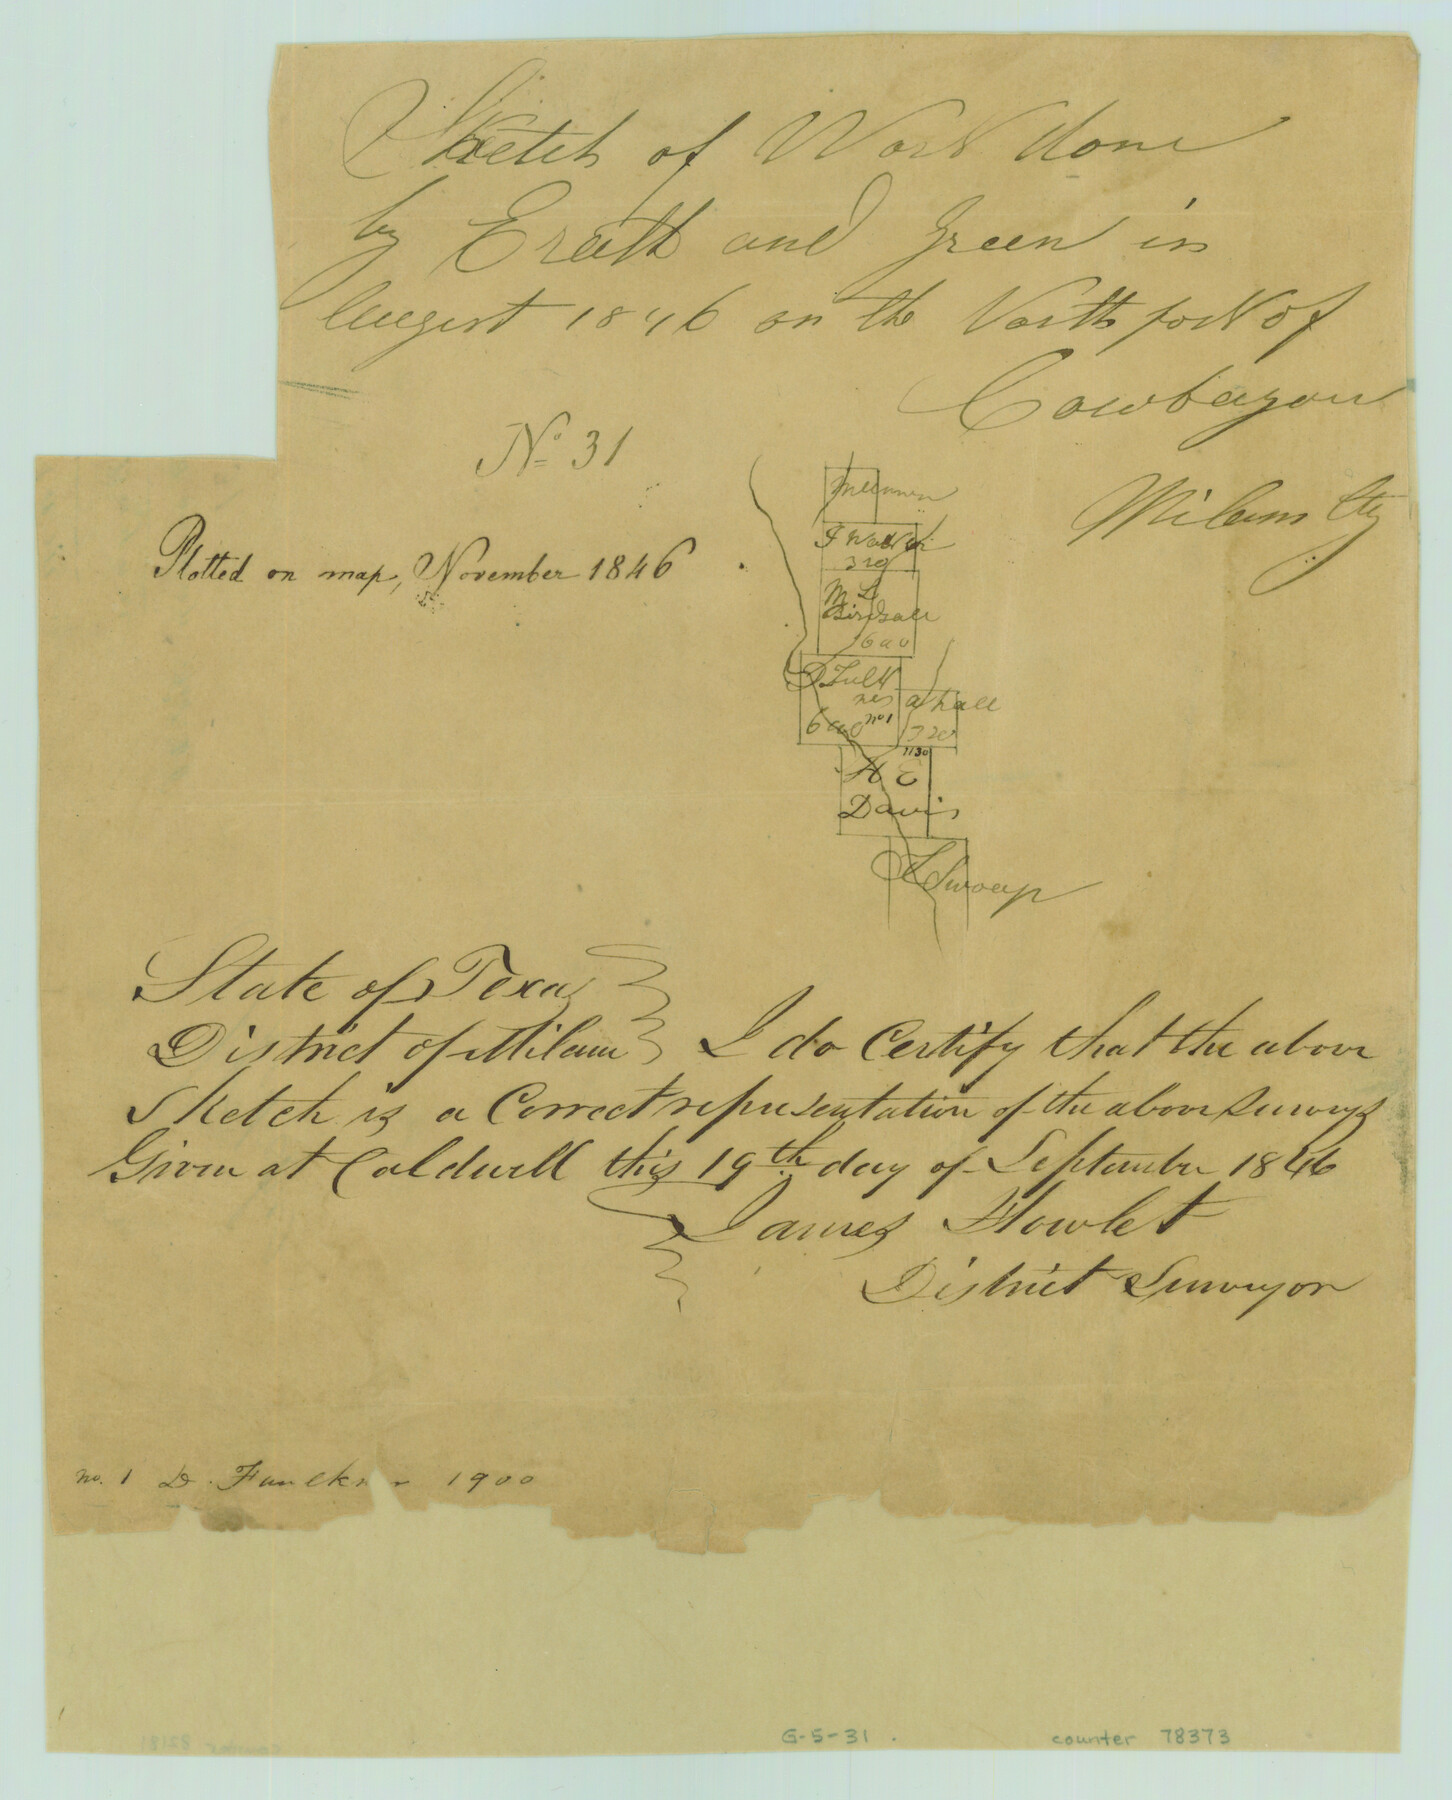 Sketch of Work done
by Erath and Green in
August 1846 on the North fork of
Cowbayou
Milam Cty
No 31
Plotted on map, November 1846
J Walker
320
M L
Birdsall
640
D Fulk
ner
640 no 1
a hall
320
1130
H E
Davis
Swoap
State of Texas
District of Milam I do Certify that the above
Sketch is a Correct representation of the above surveys
Given at Caldwell this 19th day of September 1846
James Howlet
District Surveyor
no. 1 D. Faulkner 1900
G-5-31.
counter 78373
counter 82181